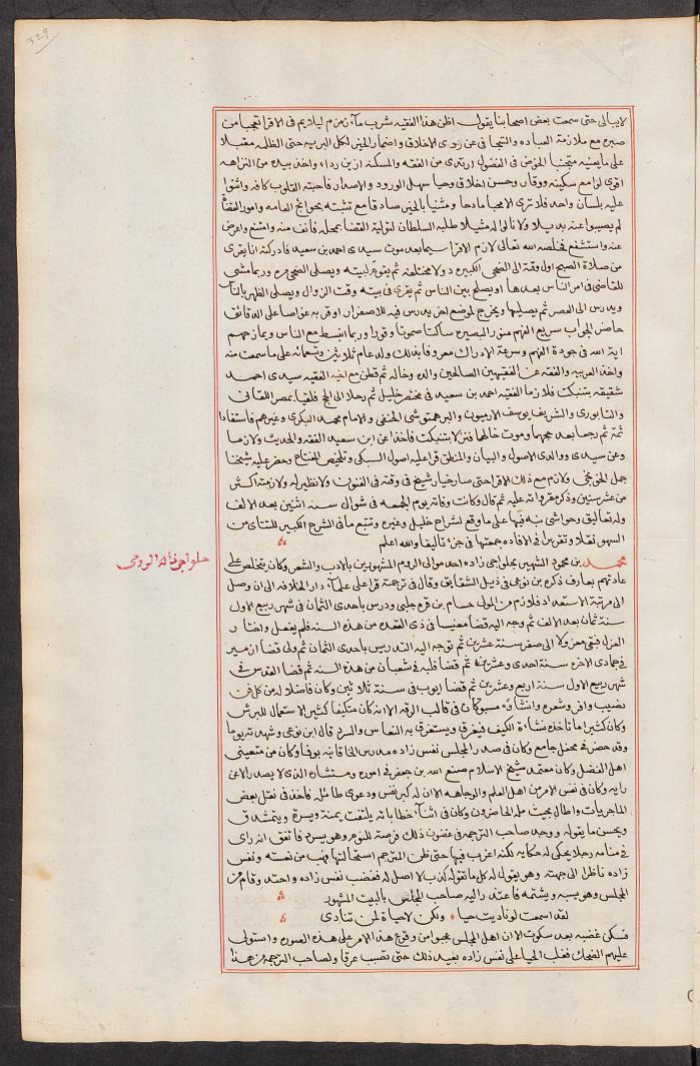 329
لا يبالى حتى سمعت بعض اصحابنا يقول اظن هذا الفقيه شرب ماء زمزم ليلا يم فى الاقرا تعجبا من
صبره مع ملازمة العباده والتجافى عن ردى الاخلاق واضمار الخير لكل البريه حتى الظلمه مقبلا
على ما يعنيه متجنبا الخوض فى الفضول ارتدى من الفقه والمسكنه ازين رداء واخذ بيده من النزاهه
اقوى لوا مع سكينه ووقار وحسن اخلاق وحيا سهل الورود والاصدار فاحبته القلوب كافه واثنوا
عليه بلسان واحد فلا ترى الا محبا مادحا ومثنيا بالخير صادقا مع تثبته بحوائج العامه وامور القضاة
لم يصيبوا عنه بديلا ولا نالوا له مثيلا طلبه السلطان لتولية القضا بمحله فانف منه وامتنع واعرض
عنه واستشفع فخلصه الله تعالى لازم الاقرا سيما بعد موت سيدى احمد بن سعيد فادركته انا يقرى
من صلاة الصبح اول وقته الى الضحى الكبيره دولا مختلفه ثم يقوم لبيته ويصلى الضحى مره وربما مشى
للقاضى فى امر الناس بعدها او يصلح بين الناس ثم يقرى فى بيته وقت الزوال ويصلى الظهر بالناس
ويدرس الى العصر ثم يصليها ويخرج لموضع اخر يدرس فيه للاصفرار او قربه غواصا على الدقائق
حاضر الجواب سريع الفهم منور البصيره ساكتا صموتا وقورا وربما انبسط مع الناس وبمازحهم
اية الله فى جودة الفهم وسرعة الادراك معروفا بذلك ولد عام ثلاثين وتسعمائه على ما سمعت منه
واخذ العربيه والفقه عن الفقيهين الصالحين والده وخاله ثم قطن مع اخيه الفقيه سيدى احمد
شقيقه بتنبكت فلازما الفقيه احمد بن سعيد فى مختصر خليل ثم رحلا الى الحج فلقيا بمصر اللقانى
والتاجورى والشريف يوسف الارميونى والبرهمتوشى الحنفى والامام محمد البكرى وغيرهم فاستفادا
ثمة ثم رجعا بعد حجهما وموت خالهما فنزلا بتنبكت فاخذا عن ابن سعيد الفقه والحديث ولازما
وعن سيدى ووالدى الاصول والبيان والمنطق قرا عليه اصول السبكى وتلخيص المفتاح وحضر عليه شيخنا
جمل الخونجى ولازم مع ذلك الاقرا حتى صار خيار شيخ فى وقته فى الفنون ولا نظير له ولازمته اكثر
من عشر سنين وذكر مقرواته عليه ثم قال وكانت وفاته يوم الجمعه فى شوال سنة اثنين بعد الالف
وله تعاليق وحواشى نبه فيها على ما وقع لشراح خليل وغيره وتتبع ما فى الشرح الكبير للتتاى من
السهو نقلا وتقريرا فى الافاده جمعتها فى جزء تاليفا والله اعلم
حلواجى زاده الرومى
محمد بن محمود الشهير بحلواجى زاده احد موالى الروم المشهورين بالادب والشعر وكان يتخلص على
عادتهم بعارف ذكره بن نوعى فى ذيل الشقايق وقال فى ترجمته قرا على علما دار الخلافة الى ان وصل
الى مرتبة الاستعداد فلازم من المولى حسام بن قره جلبى ودرس باحدى الثمان فى شهر ربيع الاول
سنة ثمان بعد الالف ثم وجه اليه قضا مغنيسا فى ذى القعده من هذه السنه فلم يفعل واختار
العزل فبقى معزولا الى صفر سنة عشر ثم توجه اليه التدريس باحدى الثمان ثم ولى قضا ازمير
فى جمادى الاخره سنة احدى وعشر ثم قضا فلبه فى شعبان من هذه السنه ثم قضا القدس فى
شهر ربيع الاول سنة اربع وعشرين ثم قضا ايوب فى سنة ثلاثين وكان فاضلا له من كل فن
نصيب وافر وشعره وانشاؤه مسبوكان فى قالب الرقه الا انه كان متكيفا كثير الاستعمال للبرش
وكان كثيرا ما تاخذه نشاة الكيف فيغرق ويستغرق به النعاس والسرد قال ابن نوعى وشهدته يوما
وقد حضر فى محفل جامع وكان فى صدر المجلس نفس زاده مدرس الخاقانيه بوفا وكان من متعينى
اهل الفضل وكان معتمد شيخ الاسلام صنع الله بن جعفر فى اموره ومستشاره الذى لا يصدر الا عن
رايه وكان فى نفس الامر من اهل العلم والوجاهه الا ان له كبر نفس ودعوى طائله فاخذ فى نقل بعض
الماجريات واطال بحيث مله الحاضرون وكان فى اثناء خطاباته يلتفت يمنة ويسرة ويتمشدق
ويحسن ما يقوله ووجد صاحب الترجمه فى غضون ذلك فرصة للنوم وهو يسرد فاتفق انه راى
فى منامه رجلا يحكى له حكايه لكنه اغرب فيها حتى ظن المترجم استحالتها فهب من نعسته ونفس
زاده ناظر الى جهته وهو يقول له كل ما تقوله كذب لا اصل له فغضب نفس زاده واحتد وقام من
المجلس وهو يسبه ويشتمه فاعتد راليه صاحب المجلس بالبيت المشهور
لقد اسمعت لو ناديت حيا ولكن لا حياة لمن تنادى
فسكن غضبه بعد سكوت الا ان اهل المجلس عجبوا من وقوع هذا الامر على هذه الصوره واستولى
عليهم الضحك فغلب الحيا على نفس زاده بعيد ذلك حتى تصبب عرقا ولصاحب الترجمه من هذا